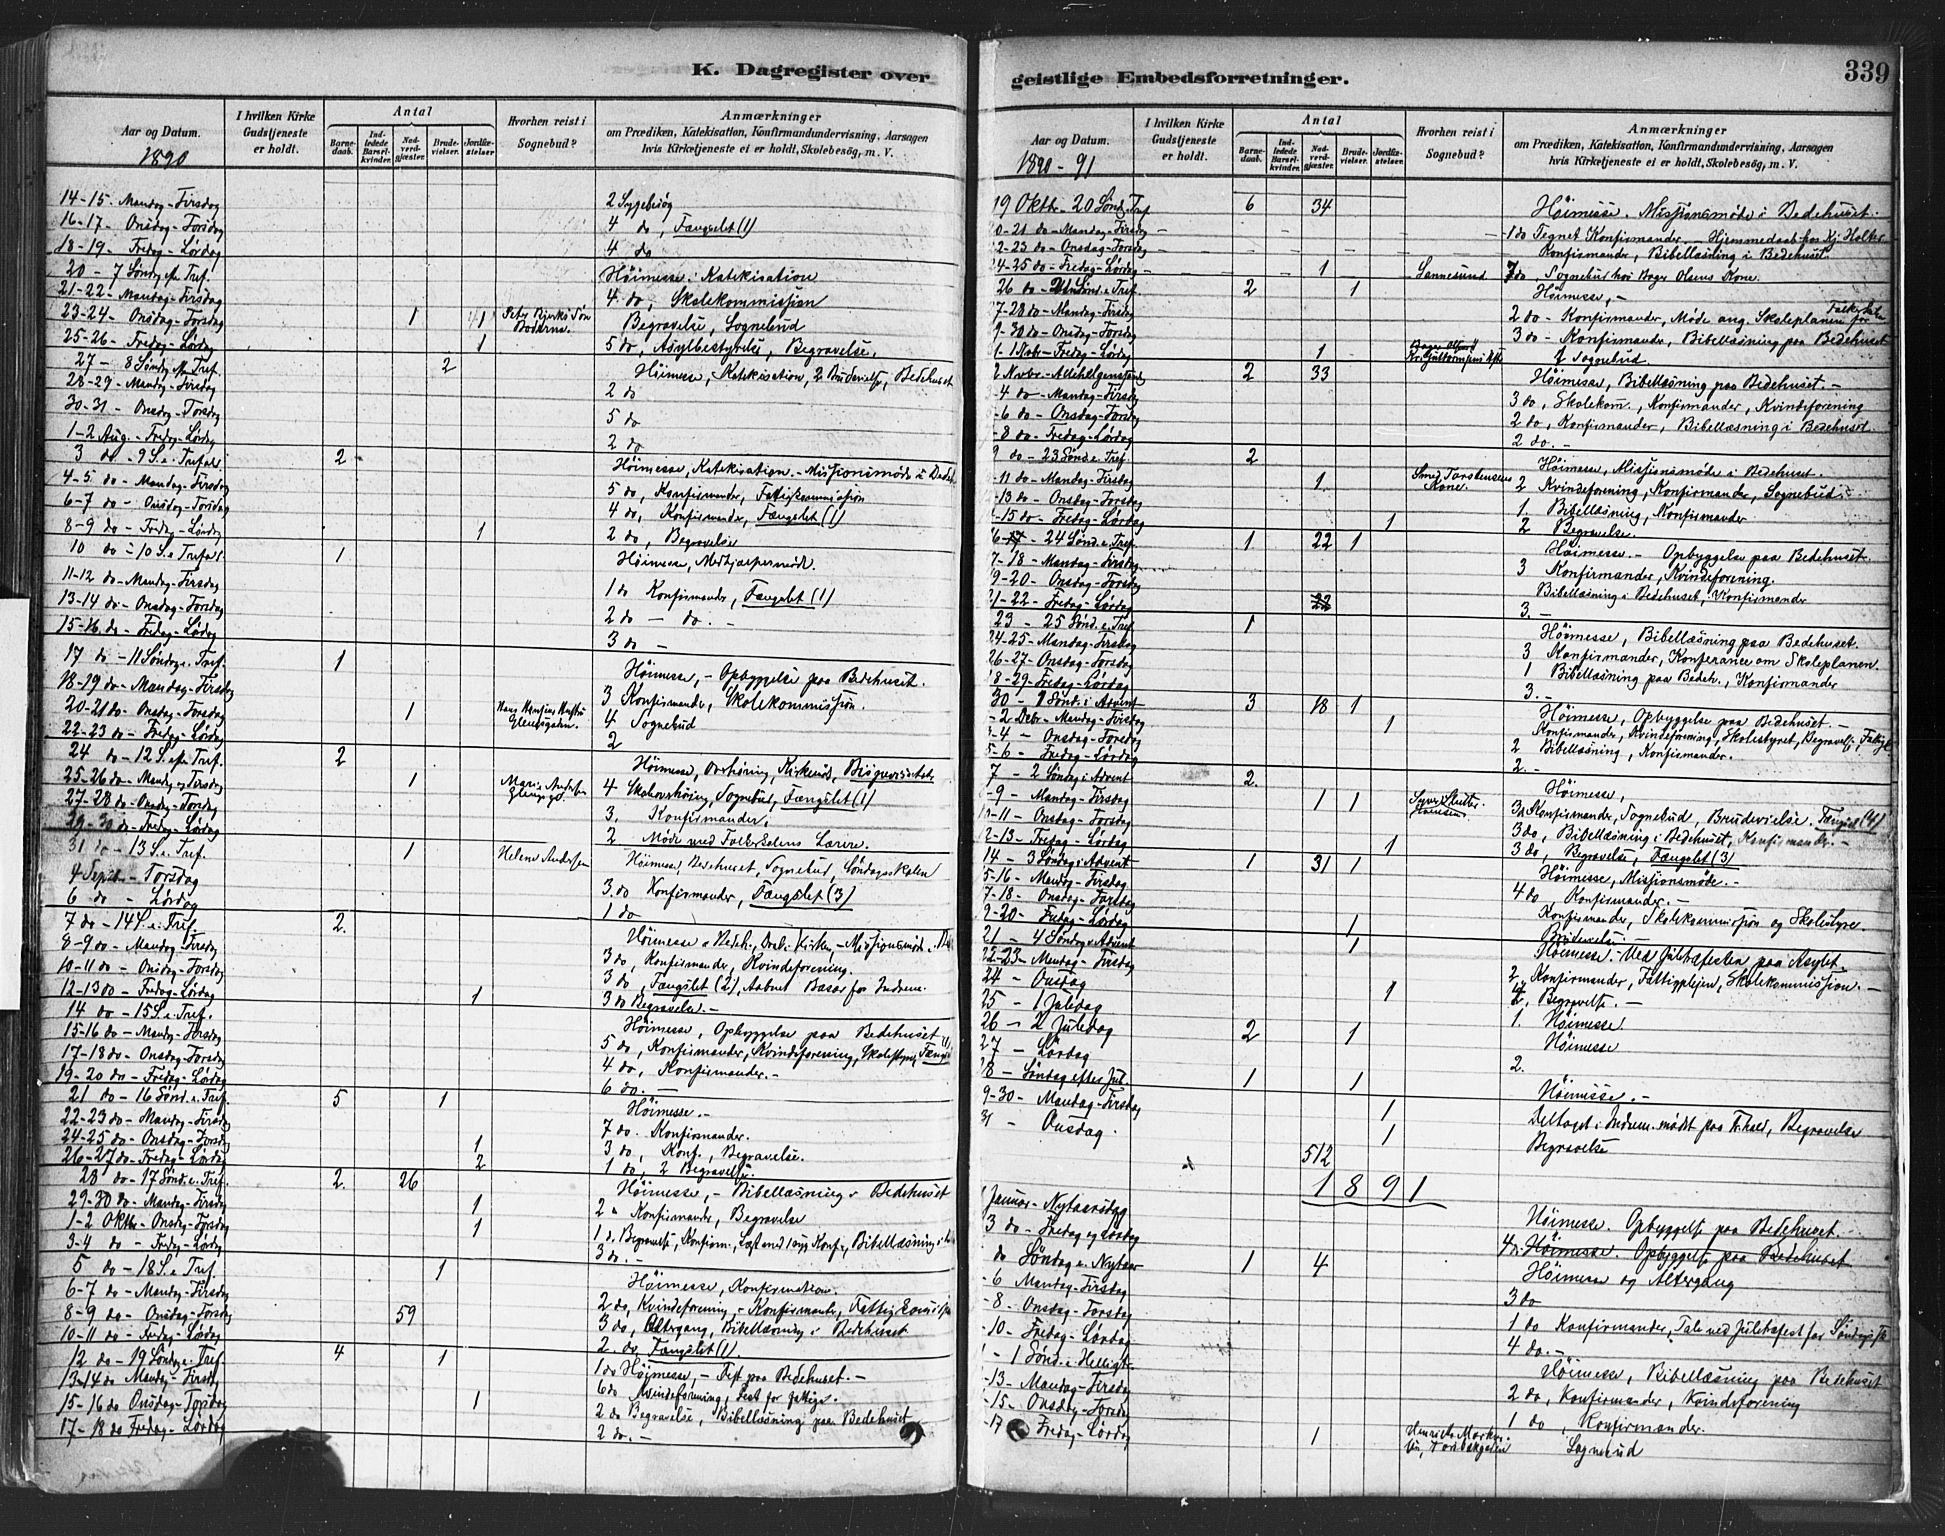 K. Dagregister over
Aar og Datum.
1890
I hvilken Kirke Gudstjeneste er holdt.
Antal
Barnedaab.
Indledede Barselkvinder.
Nadverdgjæster.
Brudevielser.
Jordfæstelser.
Hvorhen reist i Sognebud?
Anmærkninger
om Prædiken, Katekisation, Konfirmandundervisning, Aarsagen
hvis Kirketjeneste ei er holdt, Skolebesøg, m. V.
14-15. Mandag-Tirsdag 2 Sygebesøg
16-17. Onsdag-Torsdag 4 do, Fængslet (1)
18-19. Fredag-Lørdag 4 do
20 - 7 Søndag efter Tref. Höimesse. Katekisation
21-22 - Mandag-Tirsdag 4 do, Skolekommission
23-24 - Onsdag-Torsdag 1 1 Begravelse, Sognebud
25-26 - Fredag-Lørdag 1 5 do, Asylbestyrelse, Begravelse.
27 - 8 Søndag eft Tref. 2 Höimesse, - Katekisation, 2 Brudevielse, Bedehuset
28-29 - Mandag-Tirsdag 2 do
30-31 - Onsdag-Torsdag 5 do
1-2 Aug. - Fredag-Lørdag 2 do
3 do - 9 S. e. Trefol. 2 Höimesse, Katekisation. - Missionsmøde
4-5 do - Mandag-Tirsdag 5 do, Konfirmander, Fattigkommission
6-7 do - Onsdag-Torsdag 4 do, Konfirmander, Fængslet (1)
8-9 do - Fredag-Lørdag 1 2 do, Begravelse
10 do - 10 S. e. Trefol. 1 Höimesse, Medhjælpermøde.
11-12 do - Mandag-Tirsdag 1 do Konfirmander, Fængslet (1)
13-14 do - Onsdag-Torsdag 2 do - do. -
15-16 do - Fredag-Lørdag 3 do -
17 do - 11 Søndag e. Tref. 1 Höimesse, - Opbyggelse paa Bedehuset.
18-19 do - Mandag-Tirsdag 3 Konfirmander, Skolekommission.
20-21 do - Onsdag-Torsdag 1 4 Sognebud
22-23 do - Fredag-Lørdag 2
24 do - 12 S. efter Tref. 2 Höimesse, Overhøring, Kirkeraad, Bispevisitats
25-26 do - Mandag og Tirsdag 1 4 Skoleoverhøring, Sognebud, Fængslet (1)
27-28 do - Onsdag-Torsdag 3. Konfirmander.
29-30 do - Fredag-Lørdag 2 Møde med Folkeskolens Lærere.
31 do - 13 S. e. Tref. 1 Helene Andersen Höimesse, Bedehuset, Sognebud, Søndagsskolen
4 Septb. - Torsdag 3. do Konfirmander, Fængslet (3)
6 do - Lørdag 1 do
7 do - 14 S. e. Tref. 2. Höimesse
8-9 do - Mandag-Tirsdag 3 do, Konfirmander, Kvindeforening.
10-11 do - Onsdag-Torsdag 3 do, Fængslet (2), Aabnet Basar for Indrem.
12-13 do - Fredag-Lørdag 1 3 do Begravelse. -
14 do - 15 S. e. Tref. Höimesse, Opbyggelse paa Bedehuset
15-16 do - Mandag-Tirsdag 5 do, Konfirmander, Kvindeforening, Skolestyre,
17-18 do - Onsdag-Torsdag 4 do, Konfirmander. -
19-20 do - Fredag-Lørdag 6 do. -
21 do - 16 Sønd. e. Tref. 5 1 Höimesse. -
22-23 do - Mandag-Tirsdag 7 do. Konfirmander.
24-25 do - Onsdag-Torsdag 1 3 do, Konf., Begravelse.
26-27 do - Fredag-Lørdag 2 1 do, 2 Begravelse.
28 do - 17 Sønd. e. Tref. 2. 26 Höimesse, - Bibellæsning i Bedehuset
29-30 do - Mandag-Tirsdag 1 2 " Konfirmander, Begravelse
1-2 Oktbr - Onsdag-Torsdag 1 1 d. Begravelse, Konfirm.
3-4 do - Fredag-Lørdag 3 do. -
5 do - 18 S. e. Tref. 1 Höimesse, Konfirmation.
6-7 do - Mandag-Tirsdag 2 do, Kvindeforening - Konfirmander,
8-9 do - Onsdag-Torsdag 59 3 do, Altergang, Bibellæsning i Bedehuset
10-11 do - Fredag-Lørdag 2. do, Fængslet (1).
12 do - 19 Søndag e. Tref. 4 1 1 do Höimesse, - Fest paa Bedehuset. -
13-14 do Mandag-Tirsdag 6 do Kvindeforening, Fest for fattige.
15-16 do Onsdag-Torsdag 1 2 do Begravelse, Bibellæsning paa Bedehuset
17-18 do Fredag-Lørdag 2 do. -
geistlige Embedsforretninger.
339
Aar og Datum.
1890 - 91
I hvilken Kirke Gudstjeneste er holdt.
Antal
Barnedaab.
Indledede Barselkvinder.
Nadverdgjæster.
Brudevielser.
Jordfæstelser.
Hvorhen reist i Sognebud?
Anmærkninger
om Prædiken, Katekisation, Konfirmandundervisning, Aarsagen
hvis Kirketjeneste ei er holdt, Skolebesøg, m. V.
19 Oktbr. - 20 Sønd. Tref. 6 34 Höimesse. Missionsmøde i Bedehuset.
0-21 do - Mandag-Tirsdag 1 do Tegnet Konfirmander - Hjemmedaab hos
2-23 do - Onsdag-Torsdag Konfirmander, Bibellæsning i Bedehuset.
24-25 do - Fredag-Lørdag 1 Sannesund 7 do, Sognebud hos Olsens Kone.
26 do - 21 Sønd. e. Tref. 2 1 Höimesse, -
7-28 do - Mandag-Tirsdag 2 do - Konfirmander, Møde ang. Skoleplanen for
9-30 do - Onsdag-Torsdag 3 do - Konfirmander, Bibellæsning paa Bedehuset
1 Nvbr - Fredag-Lørdag 1 Sognebud
2 Nvbr - Allehelgensdag 2 33 Höimesse, Bibellæsning paa Bedehuset. -
-4 do - Mandag-Tirsdag 3 do, Skolekom., Konfirmander, Kvindeforening
-6 do - Onsdag-Torsdag 2 do, Konfirmander, Bibellæsning i Bedehuset.
-8 do - Fredag-Lørdag 2 do. -
9 do - 23 Sønd. e. Tref. 2 Höimesse, Missionsmøde i Bedehuset.
-11 do - Mandag-Tirsdag 1. Smed Torstensens Kone. 2 Kvindeforening, Konfirmander, Sognebud.
-13 do - Onsdag-Torsdag 1. Bibellæsning, Konfirmander
-15 do - Fredag-Lørdag 1 2 Begravelse.
6 - 24 Sønd. e. Tref. 1 22 1 Höimesse. - Opbyggelse paa Bedehuset
7-18 - Mandag-Tirsdag 3 Konfirmander, Kvindeforening.
9-20 - Onsdag-Torsdag Bibellæsning i Bedehuset, Konfirmander
21-22 - Fredag-Lørdag 22 3. -
23 - 25 Sønd. e. Tref. 1 Höimesse, Bibellæsning paa Bedehuset.
24-25 - Mandag-Tirsdag 3 Konfirmander, Konferance om Skoleplanen.
26-27 - Onsdag-Torsdag 1 Bibellæsning paa Bedeh., Konfirmander
8-29 - Fredag-Lørdag 3. -
30 - 1 Sønd. i Advent 3 18 1 Höimesse, Opbyggelse paa Bedehuset. -
- 2 Debr - Mandag-Tirsdag 1 Konfirmander, Kvindeforening, Skolestyret, Begravelse,
3-4 - Onsdag-Torsdag 2 Bibellæsning, Konfirmander.
5-6 - Fredag-Lørdag 2. -
7 - 2 Søndag i Advent 2. Höimesse,
-9 - Mandag-Tirsdag 1 1 Konfirmander, Sognebud, Brudevielse. Fængslet (4)
-11 - Onsdag-Torsdag 3 do, Bibellæsning i Bedehuset, Konfirmander. -
12-13 - Fredag-Lørdag 1 3 do, Begravelse, Fængslet (3)
14 - 3 Søndag i Advent 1 31 1 Höimesse, Missionsmøde. -
5-16 - Mandag-Tirsdag 4 do Konfirmander. -
7-18 - Onsdag-Torsdag Konfirmander, Skolekommission og Skolestyre.
9-20 - Fredag-Lørdag 1 Brudevielse -
21 - 4 Søndag i Advent 1 Höimesse - Ved Juletræfesten paa Asylet
22-23 - Mandag-Tirsdag 2, Konfirmander, Fattigplejen, Skolekommission. -
24 - Onsdag 1 Begravelse. -
25 - 1 Juledag 1. Höimesse!
26 - 2 Juledag 2 1 Höimesse
27 - Lørdag 2.
28 - Søndag efter Jul. 1 1 Höimesse. -
9-30 - Mandag-Tirsdag 1 Deltaget i Indrem. mødet paa Fr.hald, Begravelse
31 - Onsdag. 1 Begravelse
512
1891
1 Januar - Nytaarsdag Höimesse. Opbyggelse paa Bedehuset.
3 do - Fredag og Lørdag 4 Höimesse. Opbyggelse paa Bedehuset
do Søndag e. Nytaar 1 4 Höimesse og Altergang
-6 Mandag-Tirsdag 3 do
-8. Onsdag-Torsdag 1 do Konfirmander, Tale ved Juletræfest for
-10 - Fredag-Lørdag 4 do. -
- 1 Sønd. e. Helligt. Höimesse, Bibellæsning paa Bedehuset
-13 - Mandag-Tirsdag 2 do, Konfirmander, Kvindeforening
-15 - Onsdag-Torsdag 1 do, Konfirmander.
-17 Fredag-Lørdag 1 Sognebud